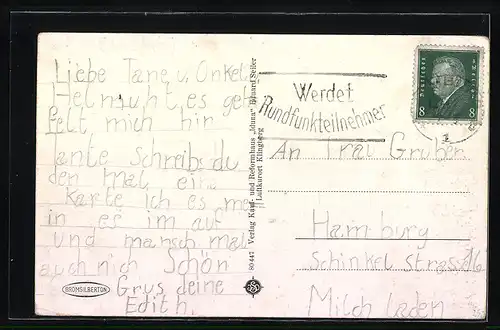 Liebe Tane u. Onkel
Helmuht, es geht
felt mich hir
Tante Schreibs du
den mal eine
Karte ich es me
in es im auf
und mansch mal
auch nich Schön
Grus deine
Edith.
BROMSILBERTON
80447 Verlag Kauf- und Reformhaus „Iduna“ Eduard Seiler
Luftkurort Klingberg
Werdet
Rundfunkteilnehmer
Deutsches Reich
8 8
An Frau Gruber
Hamburg
Schinkel Strasse 16
Milch laden